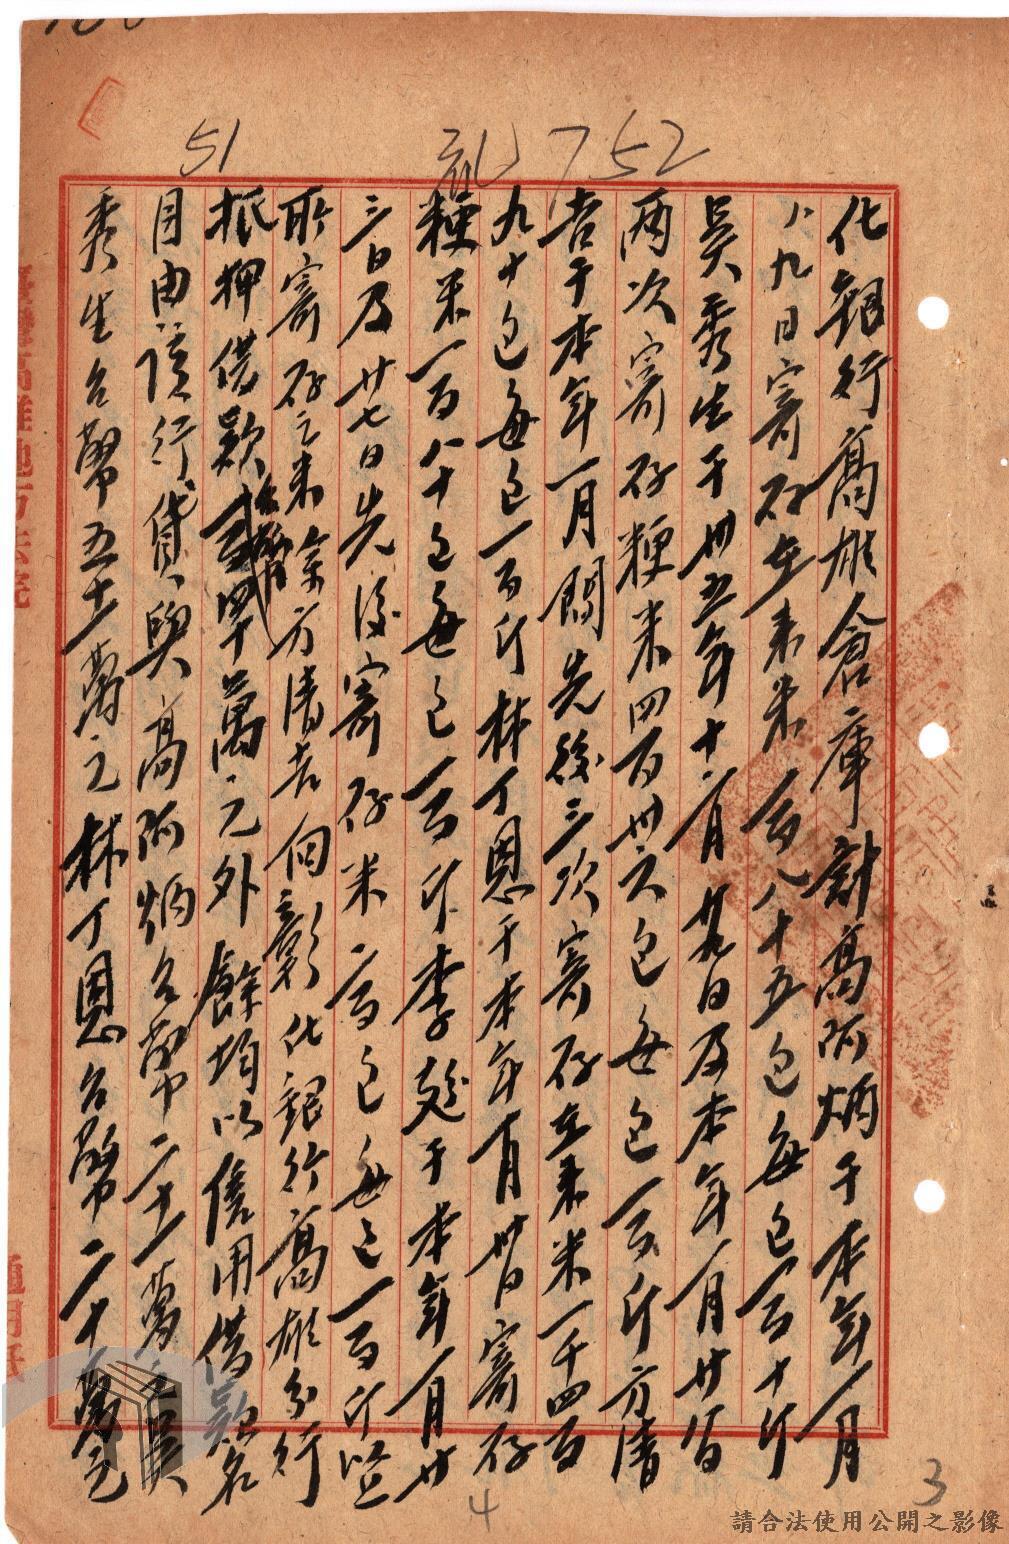 51
752
化銀行高雄倉庫計高阿炳于本年一月
八九日寄存在來米一百八十五包每包一百十斤
吳秀生于卅五年十二月廿九日及本年一月廿一日
兩次寄存粳米四百卅六包每包一百斤方清
吉于本年一月間先後三次寄存在來米一千四百
九十包每包一百斤林丁恩于本年一月卅日寄存
粳米一百八十包每包一百斤李趁于本年一月廿
三日及廿七日先後寄存米二百包每包一百斤並
所寄存之米除方清吉向彰化銀行高雄分行
抵押借款台幣四十萬元外餘均以信用借款名
目由該行貸與高阿炳台幣二十一萬元吳
秀生台幣五十一萬元林丁恩台幣二十萬元
3
4
請合法使用公開之影像